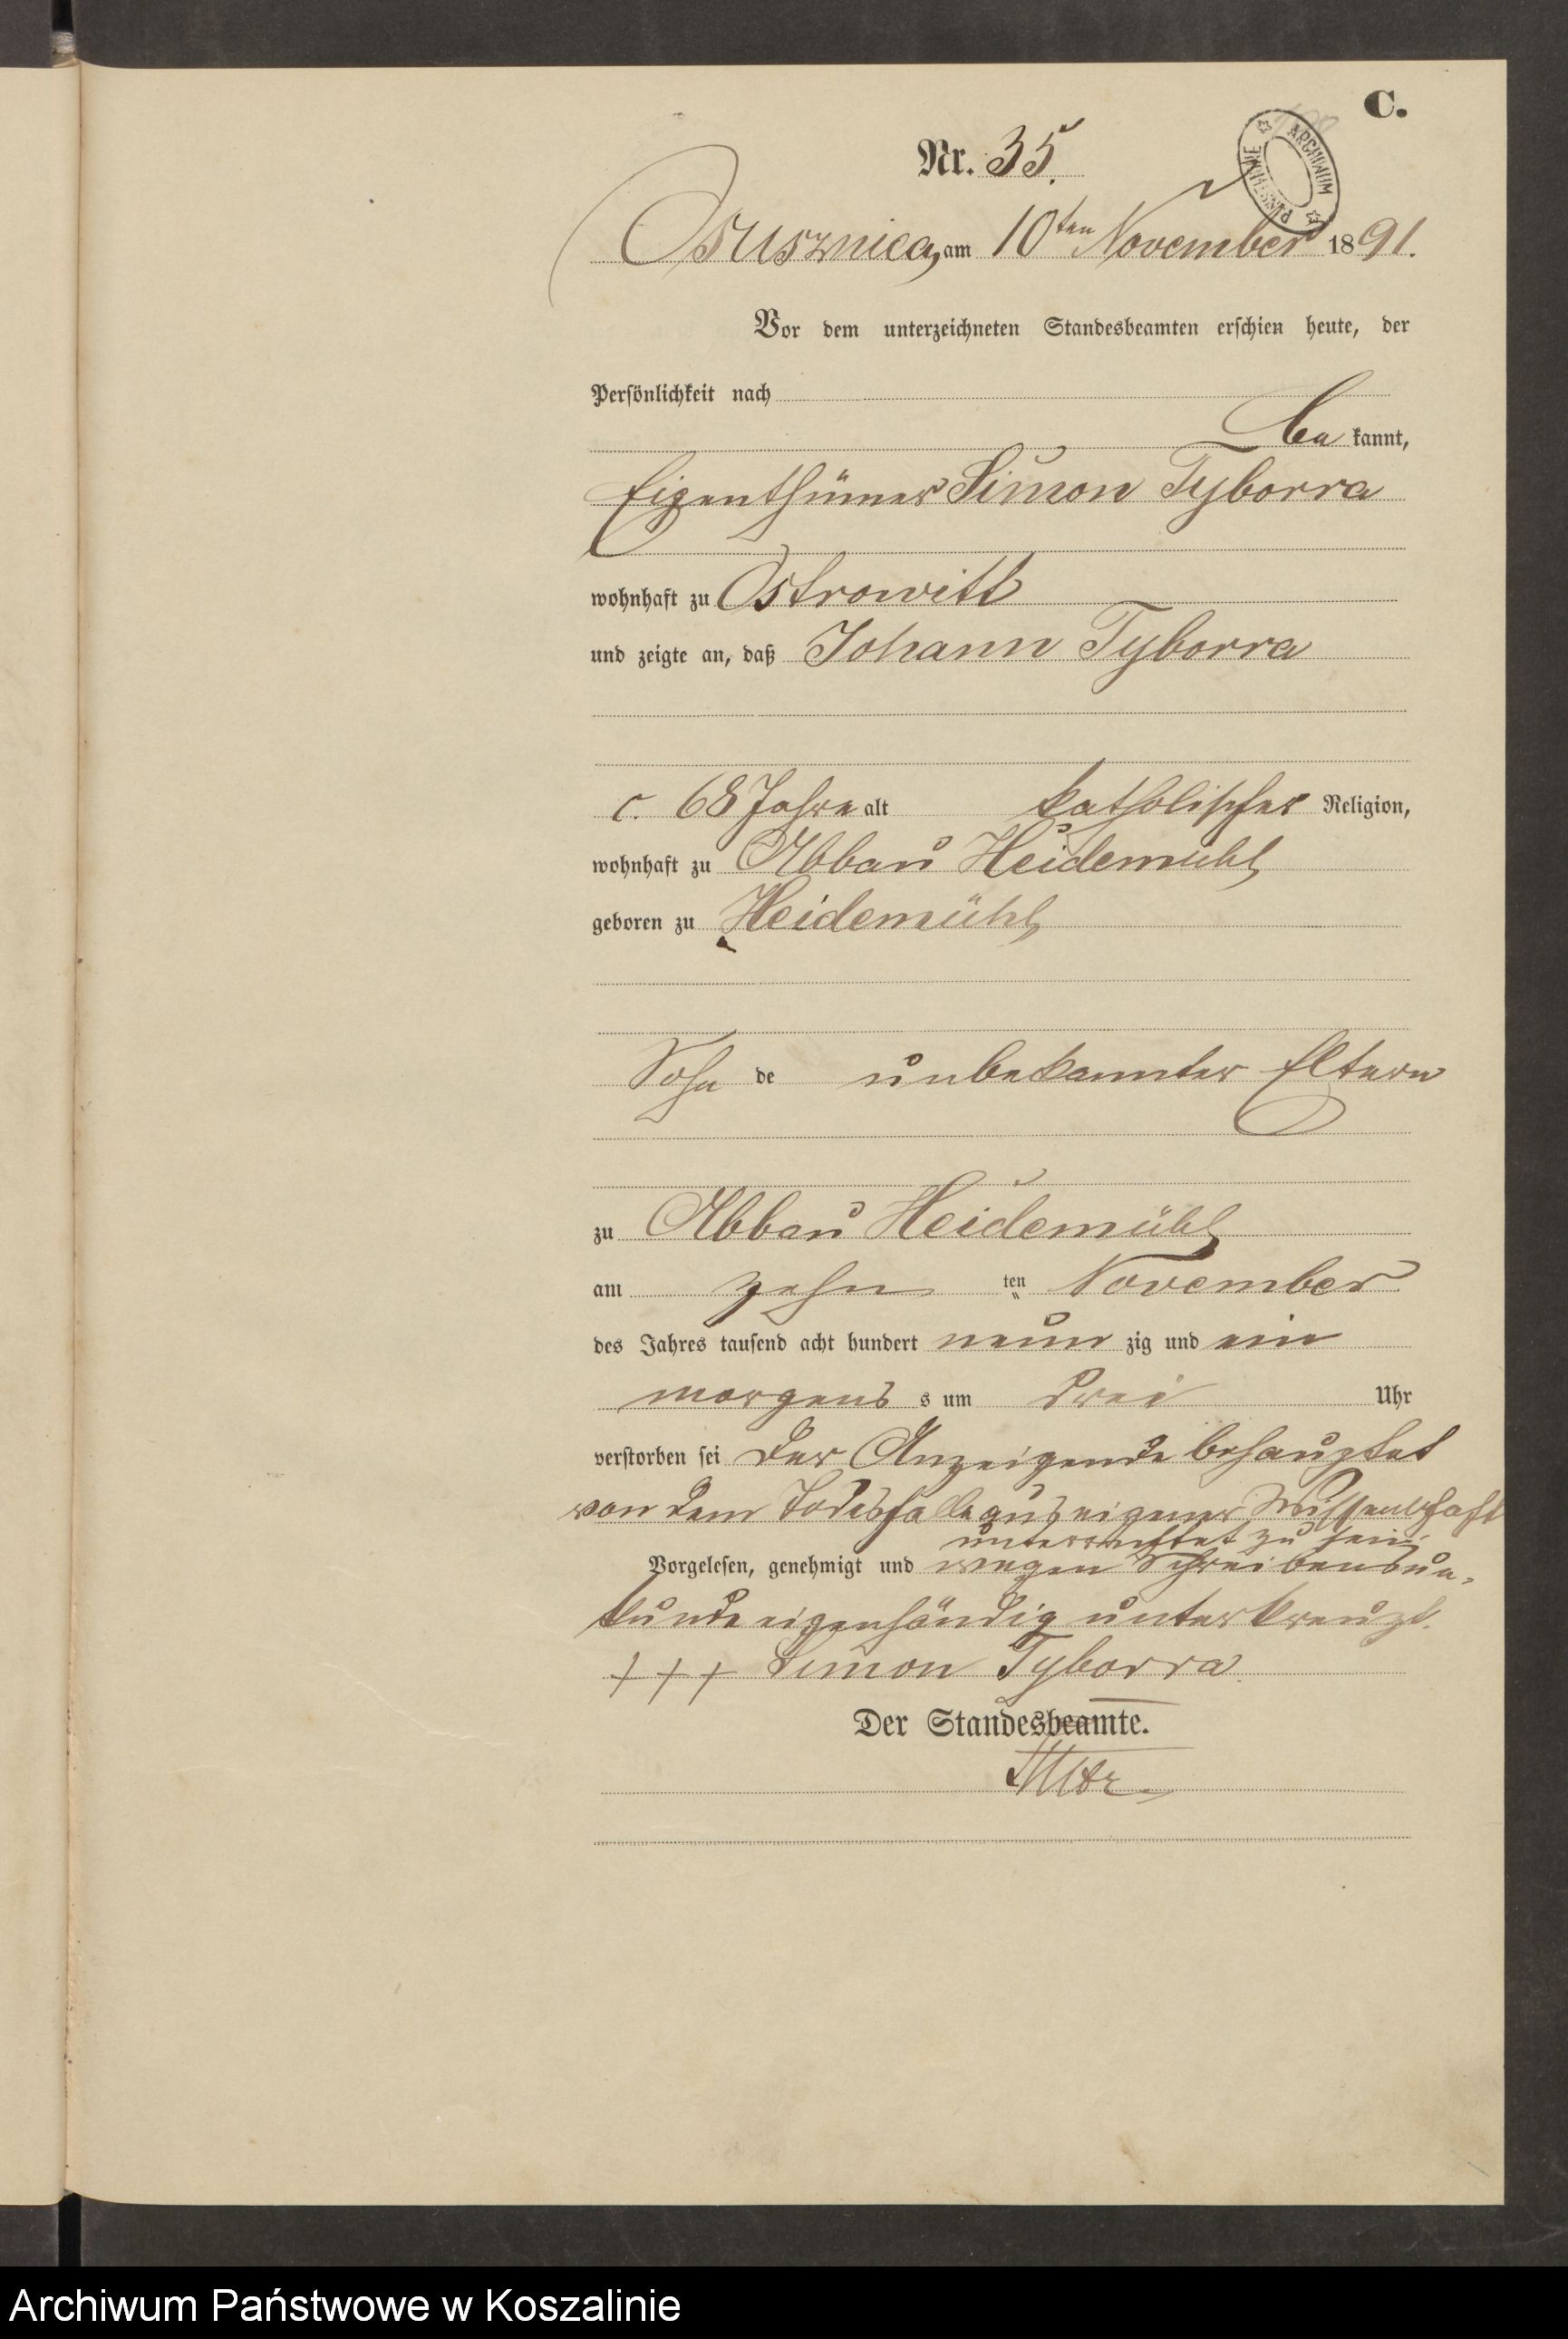 C.
ARCHIWUM PAŃSTWOWE
Nr. 35.
Osusznica, am 10ten November 1891.
Vor dem unterzeichneten Standesbeamten erschien heute, der
Persönlichkeit nach
be kannt,
Eigenthümer Simon Tyborra
wohnhaft zu Ostrowitt
und zeigte an, daß Johann Tyborra
c. 68 Jahre alt katholischer Religion,
wohnhaft zu Abbau Heidemühl
geboren zu Heidemühl
Sohn de unbekannter Eltern
zu Abbau Heidemühl
am zehn ten November
des Jahres tausend acht hundert neun zig und ein
morgens s um drei Uhr
verstorben sei Der Anzeigende behauptet
von dem Todesfalle aus eigener Wissenschaft
unterrichtet zu sein.
Vorgelesen, genehmigt und wegen Schreibensun-
kunde eigenhändig unterkreuzt.
+++ Simon Tyborra
Der Standesbeamte.
Archiwum Państwowe w Koszalinie